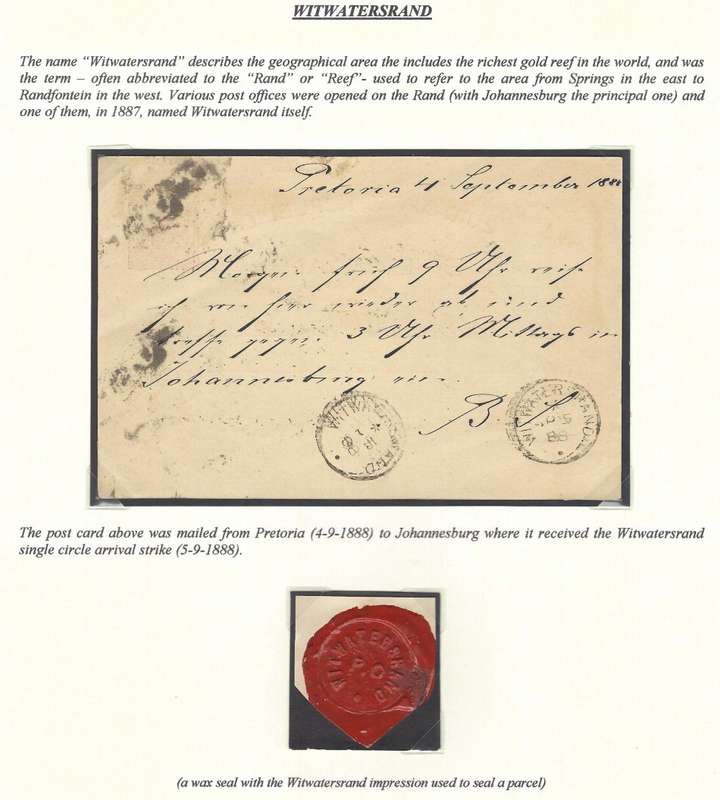 WITWATERSRAND
The name “Witwatersrand” describes the geographical area the includes the richest gold reef in the world, and was
the term – often abbreviated to the “Rand” or “Reef”- used to refer to the area from Springs in the east to
Randfontein in the west. Various post offices were opened on the Rand (with Johannesburg the principal one) and
one of them, in 1887, named Witwatersrand itself.
Pretoria 4 September 1888
Morgen früh 9 Uhr reise
ich von hier wieder ab und
treffe gegen 3 Uhr Mittags in
Johannesburg ein.
B S
WITWATERSRAND
WITWATERSRAND
88
The post card above was mailed from Pretoria (4-9-1888) to Johannesburg where it received the Witwatersrand
single circle arrival strike (5-9-1888).
WITWATERSRAND
P.O
(a wax seal with the Witwatersrand impression used to seal a parcel)